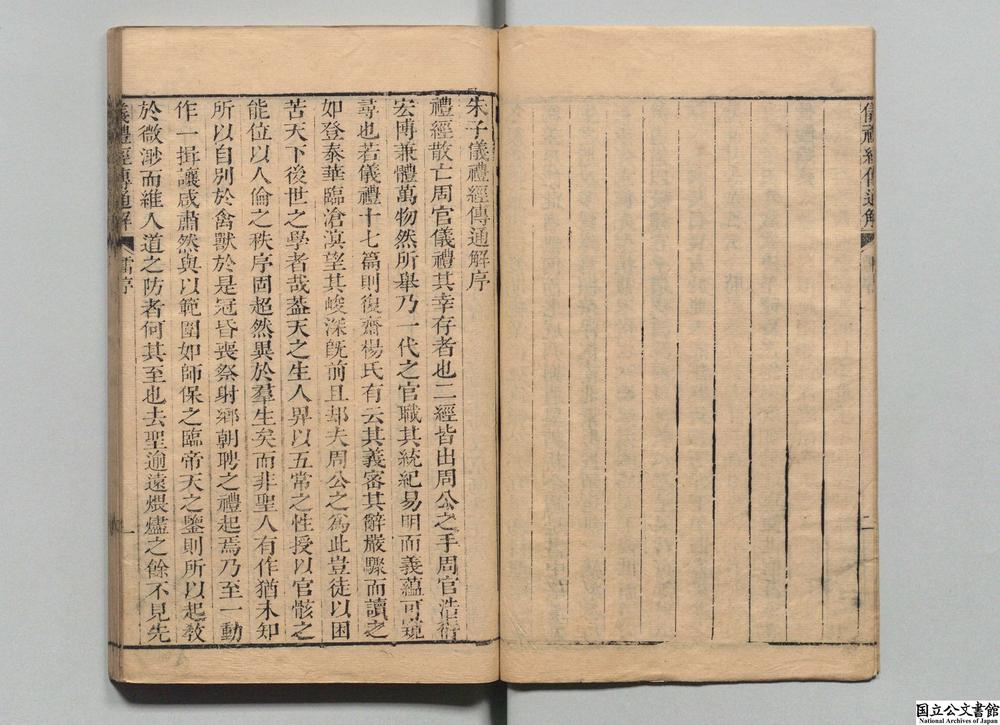 儀禮經傳通解
二
朱子儀禮經傳通解序
禮經散亡周官儀禮其幸存者也二經皆出周公之手周官浩衍
宏博兼體萬物然所舉乃一代之官職其統紀易明而義蘊可窺
尋也若儀禮十七篇則復齋楊氏有云其義審其辭嚴驟而讀之
如登泰華臨滄溟望其峻深旣前且却夫周公之爲此豈徒以困
苦天下後世之學者哉葢天之生人畀以五常之性授以官骸之
能位以人倫之秩序固超然異於羣生矣而非聖人有作猶未知
所以自別於禽獸於是冠昏喪祭射鄉朝聘之禮起焉乃至一動
作一揖讓咸肅然與以範圍如師保之臨帝天之鑒則所以起敎
於微渺而維人道之防者何其至也去聖逾遠煨燼之餘不見先
儀禮經傳通解
序
一
国立公文書館
National Archives of Japan